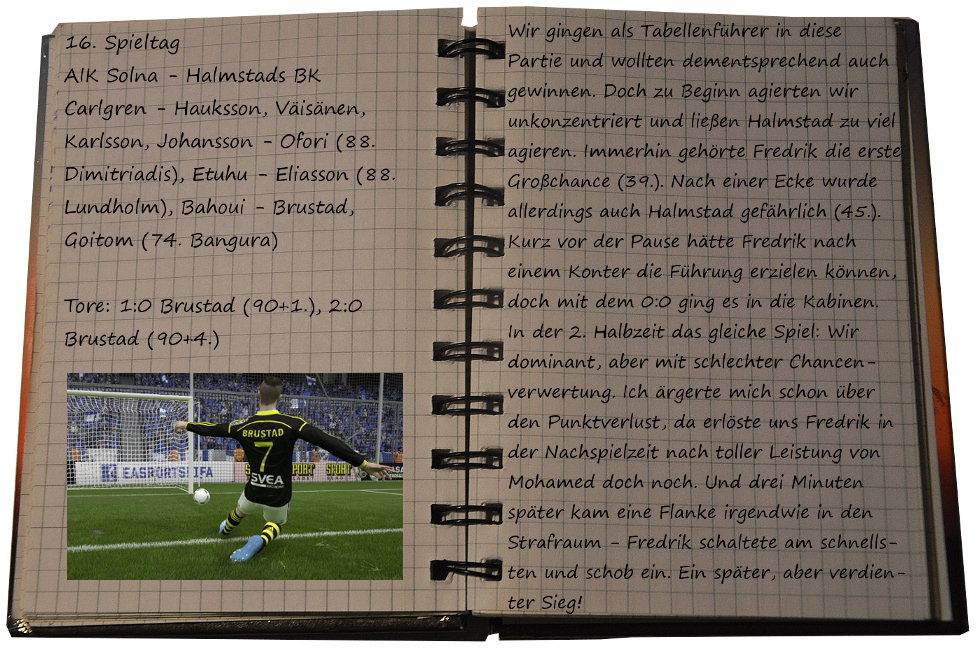 16. Spieltag
AIK Solna - Halmstads BK
Carlgren - Hauksson, Väisänen,
Karlsson, Johansson - Ofori (88.
Dimitriadis), Etuhu - Eliasson (88.
Lundholm), Bahoui - Brustad,
Goitom (74. Bangura)
Tore: 1:0 Brustad (90+1.), 2:0
Brustad (90+4.)
EASPORTSFIFA
SPORT
BRUSTAD
7
SVEA
Wir gingen als Tabellenführer in diese
Partie und wollten dementsprechend auch
gewinnen. Doch zu Beginn agierten wir
unkonzentriert und ließen Halmstad zu viel
agieren. Immerhin gehörte Fredrik die erste
Großchance (39.). Nach einer Ecke wurde
allerdings auch Halmstad gefährlich (45.).
Kurz vor der Pause hätte Fredrik nach
einem Konter die Führung erzielen können,
doch mit dem 0:0 ging es in die Kabinen.
In der 2. Halbzeit das gleiche Spiel: Wir
dominant, aber mit schlechter Chancen-
verwertung. Ich ärgerte mich schon über
den Punktverlust, da erlöste uns Fredrik in
der Nachspielzeit nach toller Leistung von
Mohamed doch noch. Und drei Minuten
später kam eine Flanke irgendwie in den
Strafraum - Fredrik schaltete am schnells-
ten und schob ein. Ein später, aber verdien-
ter Sieg!